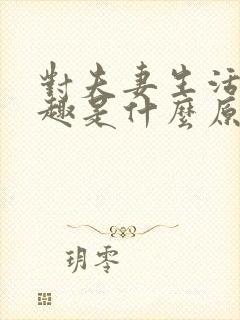 對夫妻生活
趣是什麼原
玥零